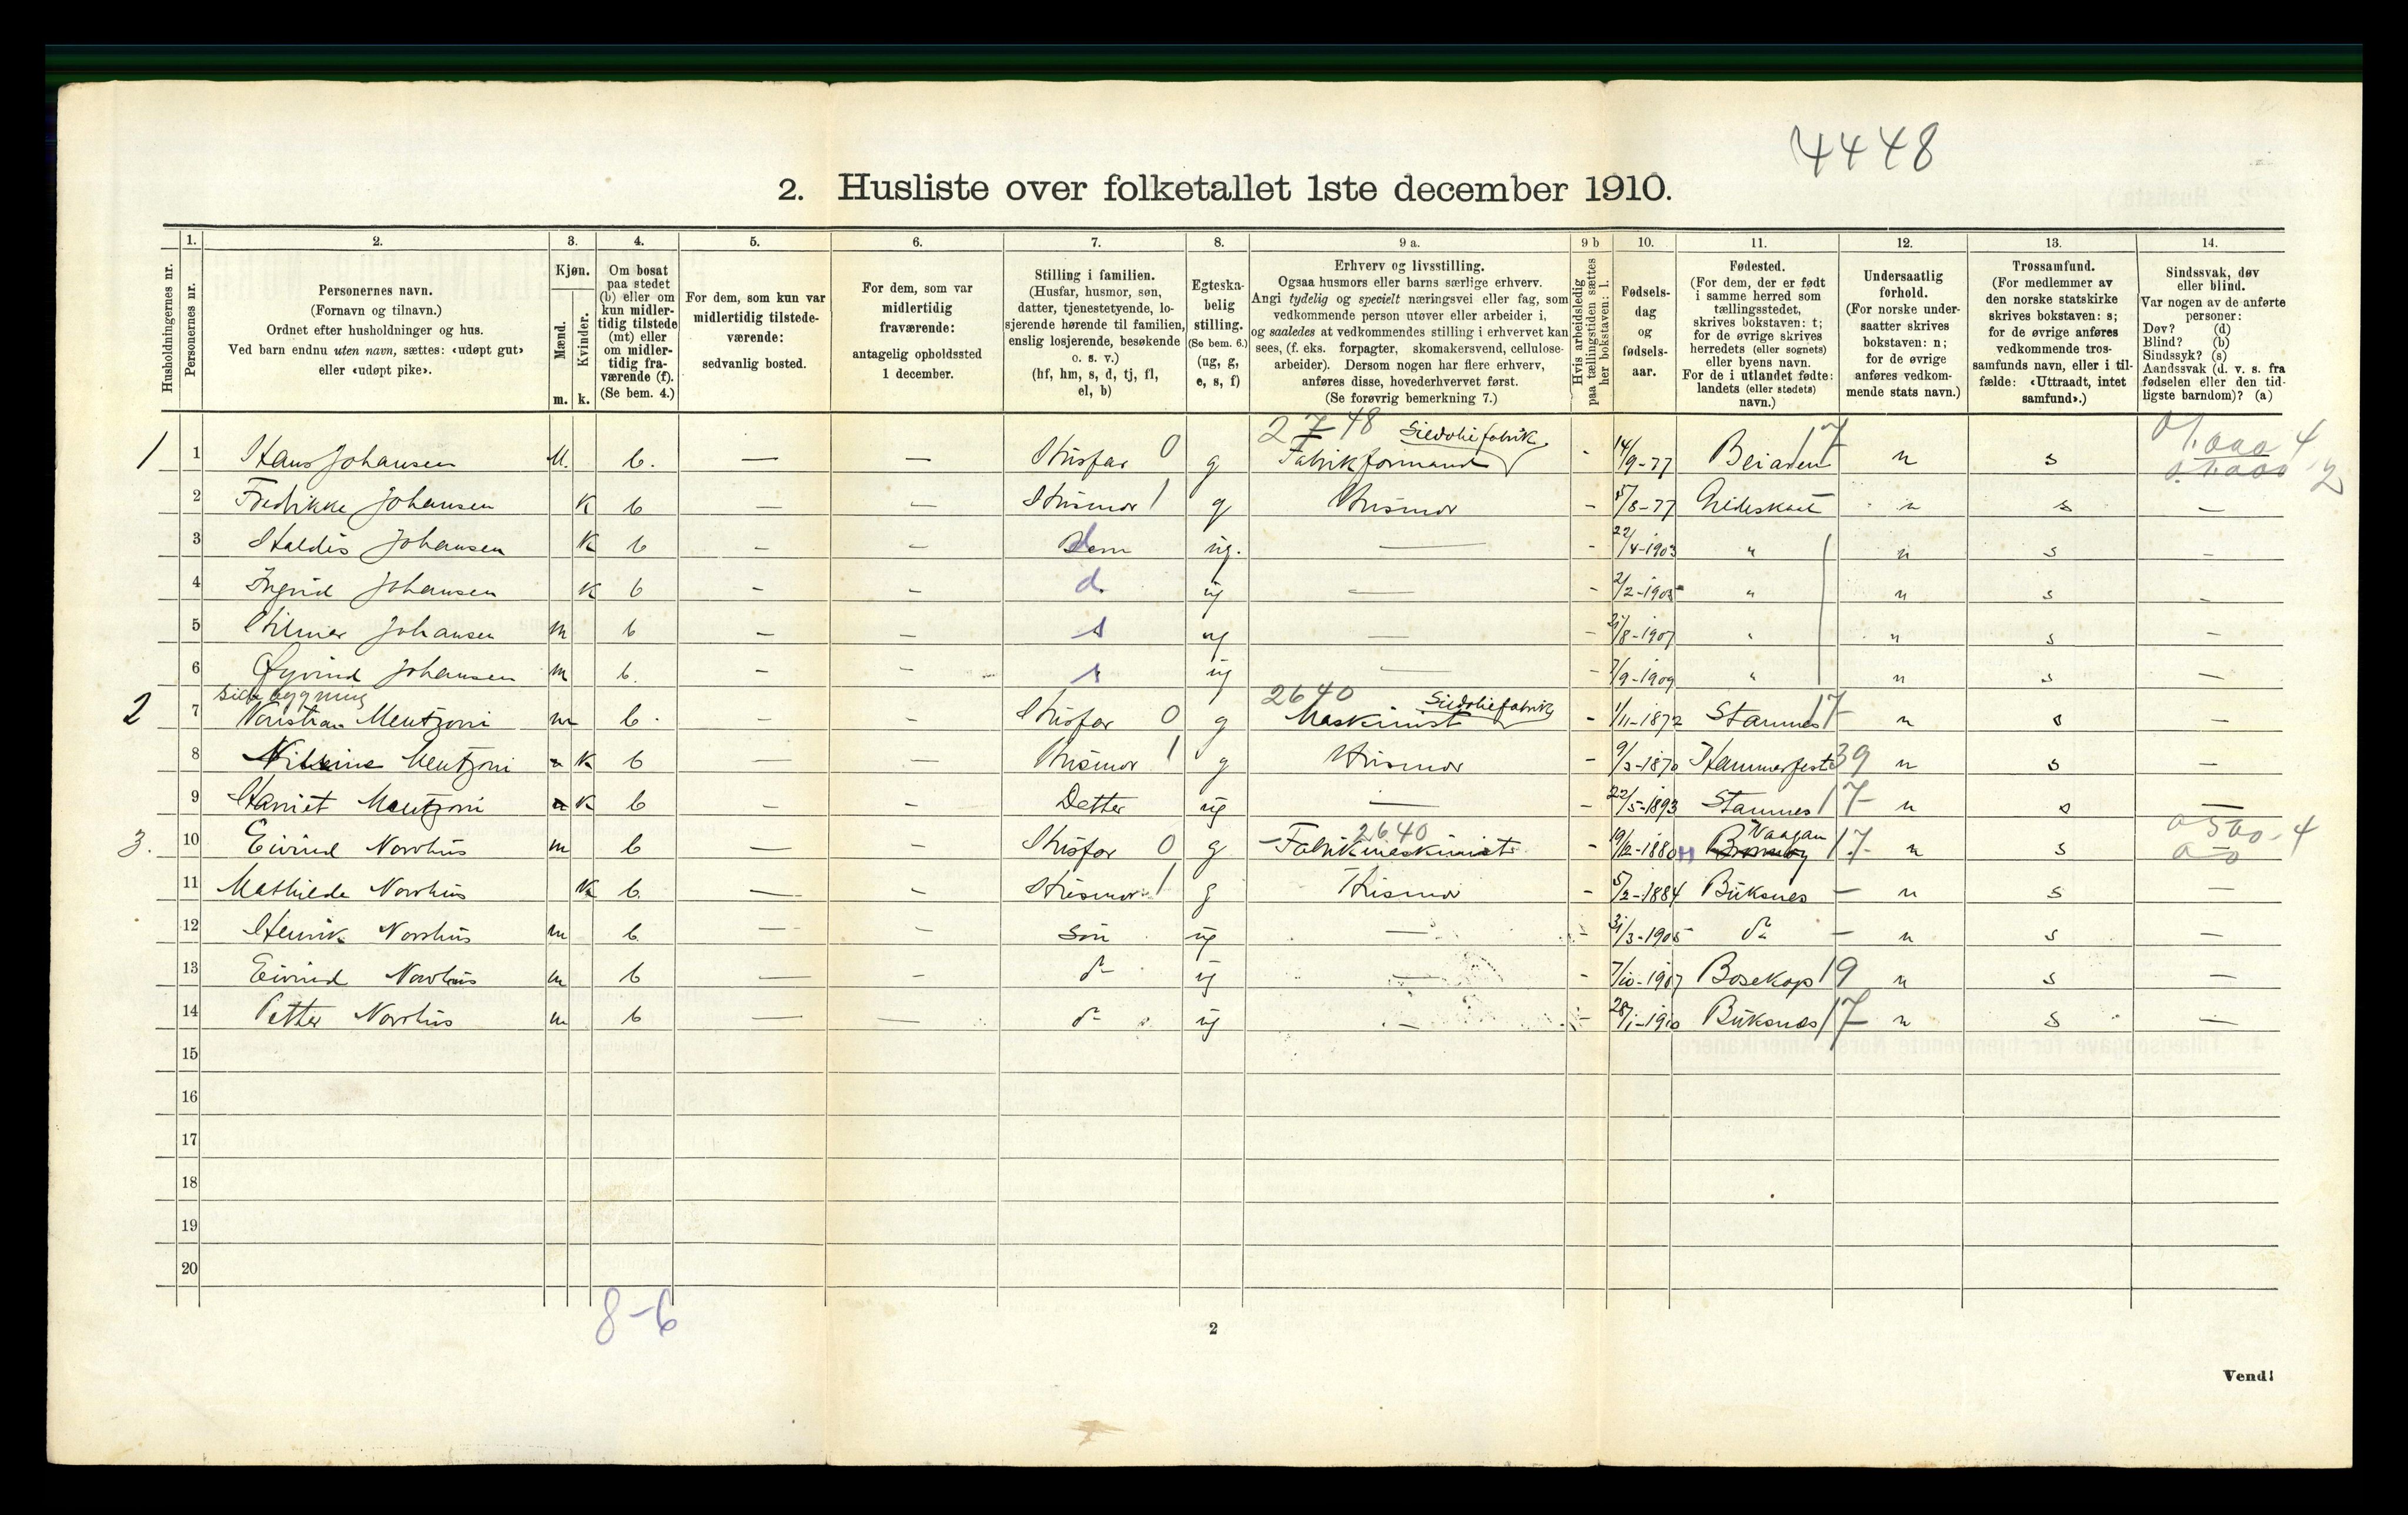 4448
2. Husliste over folketallet 1ste december 1910.
1. 2. 3. 4. 5. 6. 7. 8. 9 a. 9 b 10. 11. 12. 13. 14.
Husholdningernes nr.
Personernes nr.
Personernes navn.
(Fornavn og tilnavn.)
Ordnet efter husholdninger og hus.
Ved barn endnu uten navn, sættes: «udøpt gut»
eller «udøpt pike».
Kjøn.
Mænd.
Kvinder.
m. k.
Om bosat
paa stedet
(b) eller om
kun midler-
tidig tilstede
(mt) eller
om midler-
tidig fra-
værende (f).
(Se bem. 4.)
For dem, som kun var
midlertidig tilstede-
værende:
sedvanlig bosted.
For dem, som var
midlertidig
fraværende:
antagelig opholdssted
1 december.
Stilling i familien.
(Husfar, husmor, søn,
datter, tjenestetyende, lo-
sjerende hørende til familien,
enslig losjerende, besøkende
o. s. v.)
(hf, hm, s, d, tj, fl,
el, b)
Egteska-
belig
stilling.
(Se bem. 6.)
(ug, g,
e, s, f)
Erhverv og livsstilling.
Ogsaa husmors eller barns særlige erhverv.
Angi tydelig og specielt næringsvei eller fag, som
vedkommende person utøver eller arbeider i,
og saaledes at vedkommendes stilling i erhvervet kan
sees, (f. eks. forpagter, skomakersvend, cellulose-
arbeider). Dersom nogen har flere erhverv,
anføres disse, hovederhvervet først.
(Se forøvrig bemerkning 7.)
Hvis arbeidsledig
paa tællingstiden sættes
her bokstaven: l.
Fødsels-
dag
og
fødsels-
aar.
Fødested.
(For dem, der er født
i samme herred som
tællingsstedet,
skrives bokstaven: t;
for de øvrige skrives
herredets (eller sognets)
eller byens navn.
For de i utlandet fødte:
landets (eller stedets)
navn.)
Undersaatlig
forhold.
(For norske under-
saatter skrives
bokstaven: n;
for de øvrige
anføres vedkom-
mende stats navn.)
Trossamfund.
(For medlemmer av
den norske statskirke
skrives bokstaven: s;
for de øvrige anføres
vedkommende tros-
samfunds navn, eller i til-
fælde: «Uttraadt, intet
samfund».)
Sindssvak, døv
eller blind.
Var nogen av de anførte
personer:
Døv? (d)
Blind? (b)
Sindssyk? (s)
Aandssvak (d. v. s. fra
fødselen eller den tid-
ligste barndom)? (a)
2748 Sildoliefabrik
1 1 Hans Johansen M. b. — — Husfar 0 g Fabrikformand - 14/9-77 Beiaren 17 n s
2 Fredrikke Johansen K b — — Husmor 1 g Husmor - 5/8-77 Gildeskaal n s —
3 Haldis Johansen K b - - d ug. — - 22/4-1903 " n s -
4 Ingrid Johansen K b - - d. ug — - 2/2-1905 " n s -
5 Hilmer Johansen m b - - s ug — - 21/8-1907 " n s -
6 Øyvind Johansen m b. - - s ug — - 7/9-1909 " n s —
sidebygning 2640 Sildoliefabrik
2 7 Kristian Mentzoni m b. - - Husfar 0 g Maskinist - 1/11-1872 Stamnes 17 n s —
8 Mentzoni K b — - Husmor 1 g Husmor - 9/3-1870 Hammerfest 39 n s —
9 Harriet Mentzoni K b - - Detter ug — - 22/5-1893 Stamnes 17 n s —
2640 Vaagan
3. 10 Eivind Norrhus m b — - Husfar 0 g Fabrikmaskinist - 19/12-1880 17 n s
11 Mathilde Norrhus K b. — - Husmor 1 g Husmor - 5/2-1884 Buksnes — n s —
12 Henrik Norrhus m b. — - Søn ug — - 31/3-1905 do — n s —
13 Eivind Norrhus m b — - do ug — - 7/10-1907 Bosekop 19 n s —
14 Petter Norrhus m b — — do ug - - 28/1-1910 Buksnes 17 n s —
15
16
17
18
19
20
8-6
2
Vend!